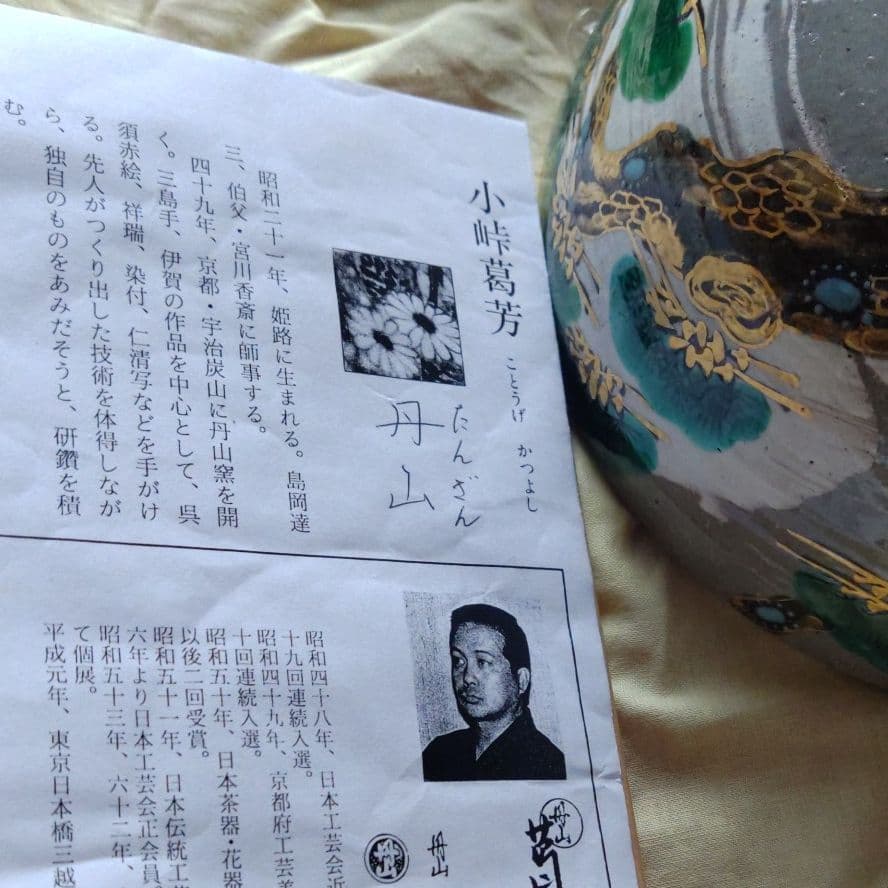 小峠葛芳 ことうげ かつよし
たんざん
丹山
昭和二十一年、姫路に生まれる。島岡達
三、伯父・宮川香斎に師事する。
四十九年、京都・宇治炭山に丹山窯を開
く。三島手、伊賀の作品を中心として、呉
須赤絵、祥瑞、染付、仁清写などを手がけ
る。先人がつくり出した技術を体得しなが
ら、独自のものをあみだそうと、研鑽を積
む。
丹山
丹山
昭和四十八年、日本工芸会近
十九回連続入選。
昭和四十九年、京都府工芸美
十回連続入選。
昭和五十年、日本茶器・花器
以後二回受賞。
昭和五十一年、日本伝統工芸
六年より日本工芸会正会員。
昭和五十三年、六十二年、
て個展。
平成元年、東京日本橋三越